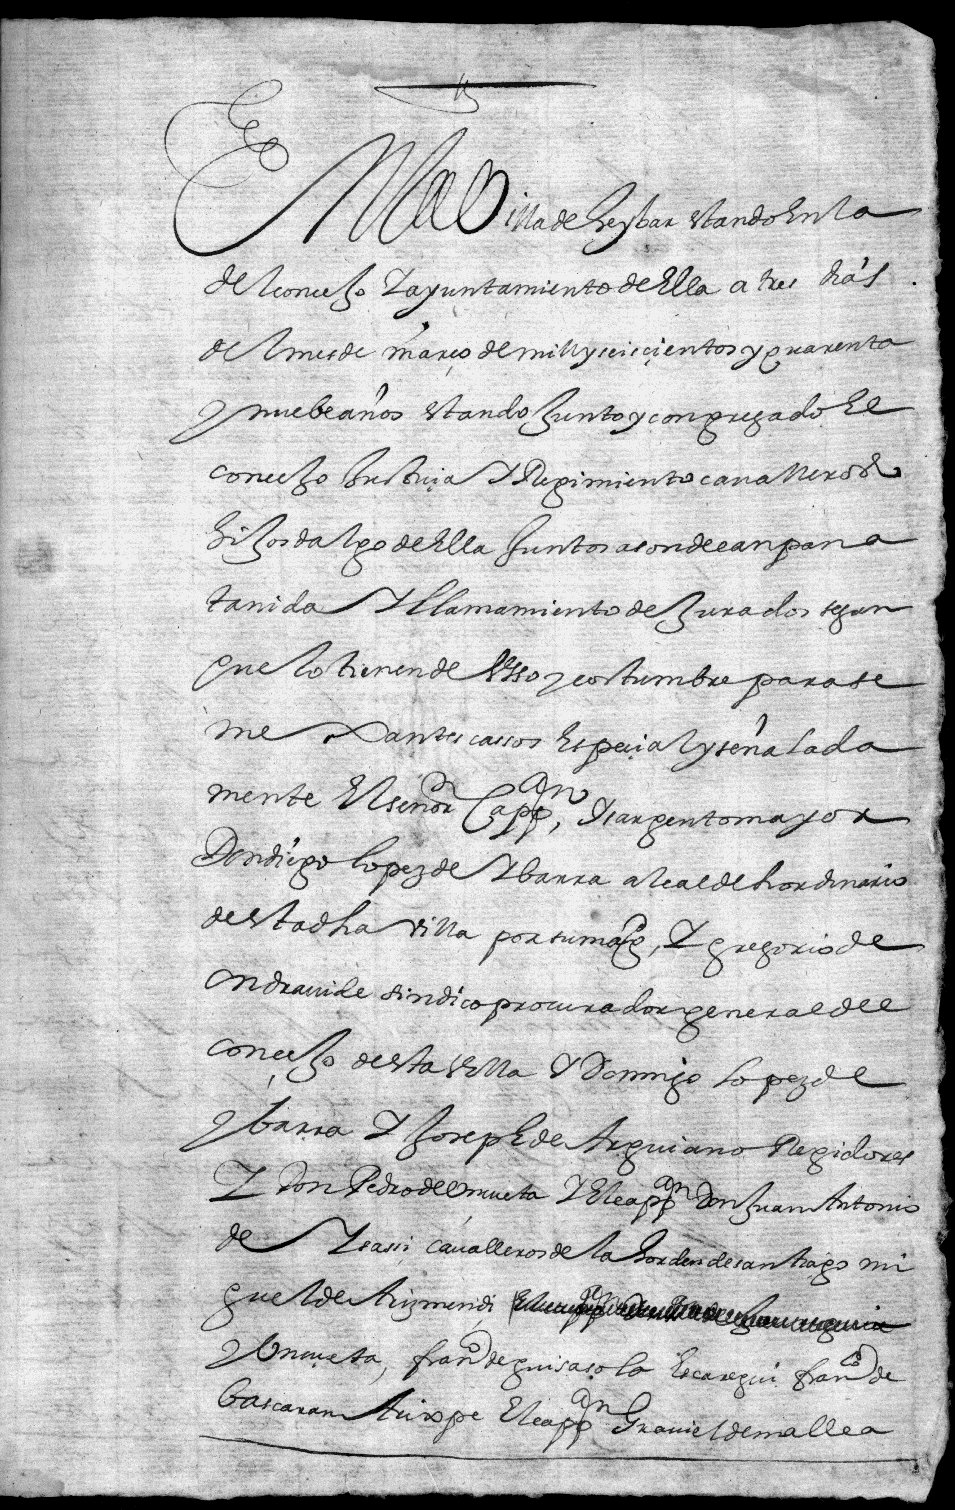 En La Villa de heybar estando En la
del concejo Y ayuntamiento de Ella a tres dias
del mes de março de mill y seiscientos y quarenta
y nuebe años estando Junto y congregado El
concejo Justicia Y Regimiento cavalleros
hijosdalgo de Ella Juntos a son de canpana
tanida Y llamamiento de Jurados segun
que lo tienen de Usso y costumbre para se
me Jantes cassos Especial y señalada
mente El señor Cappan, Y sargento mayor
Don diego lopez de Ybarra alcalde hordinario
de esta dha villa por su magd, Y gregorio de
sindico procurador general del
concejo de esta Villa Y Domingo lopez de
Ybarra Y Joseph de Arguiano Regidores
Y Don Pedro de Y El cappan Don Juan Antonio
de Ysassi cavalleros de la horden de santiago mi
guel de Arizmendi
franco de guisasola Escaregui franco de
bascaran Arizpe El cappan Graviel de mallea